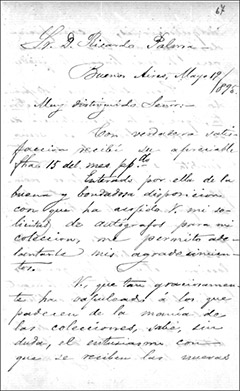 67
Sr. D. Ricardo Palma
Buenos Aires, Mayo 19/896
Muy distinguido Señor:
Con verdadera satis
faccion recibí su apreciable
15 del mes ppdo
Enterado por ella de la
buena y bondadosa disposicion
con que ha acojido V. mi so-
licitud de autógrafos para mi
coleccion, me permito ade-
lantarle mis agradecimien-
tos.
V. que tan graciosamen-
te ha a los que
padecen de la manía de
las colecciones, sabe, sin
duda, el entusiasmo con
que se reciben las nuevas